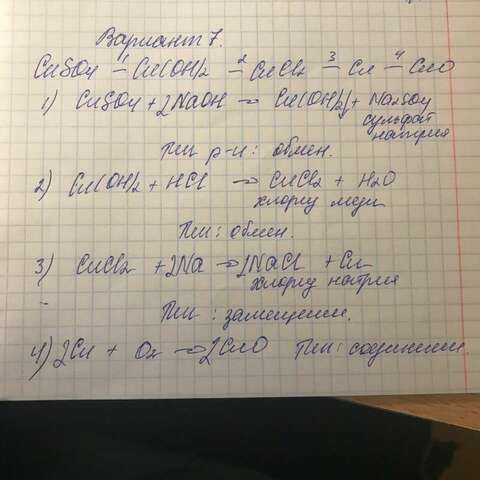 Вариант 7.
CuSO4 –1 Cu(OH)2 –2 CuCl2 –3 Cu –4 CuO
1) CuSO4 + 2NaOH → Cu(OH)2↓ + Na2SO4
сульфат
натрия
Тип р-и: обмен.
2) Cu(OH)2 + HCl → CuCl2 + H2O
хлорид меди
Тип: обмен.
3) CuCl2 + 2Na → 2NaCl + Cu
хлорид натрия
Тип: замещении.
4) 2Cu + O2 → 2CuO Тип: соединении.